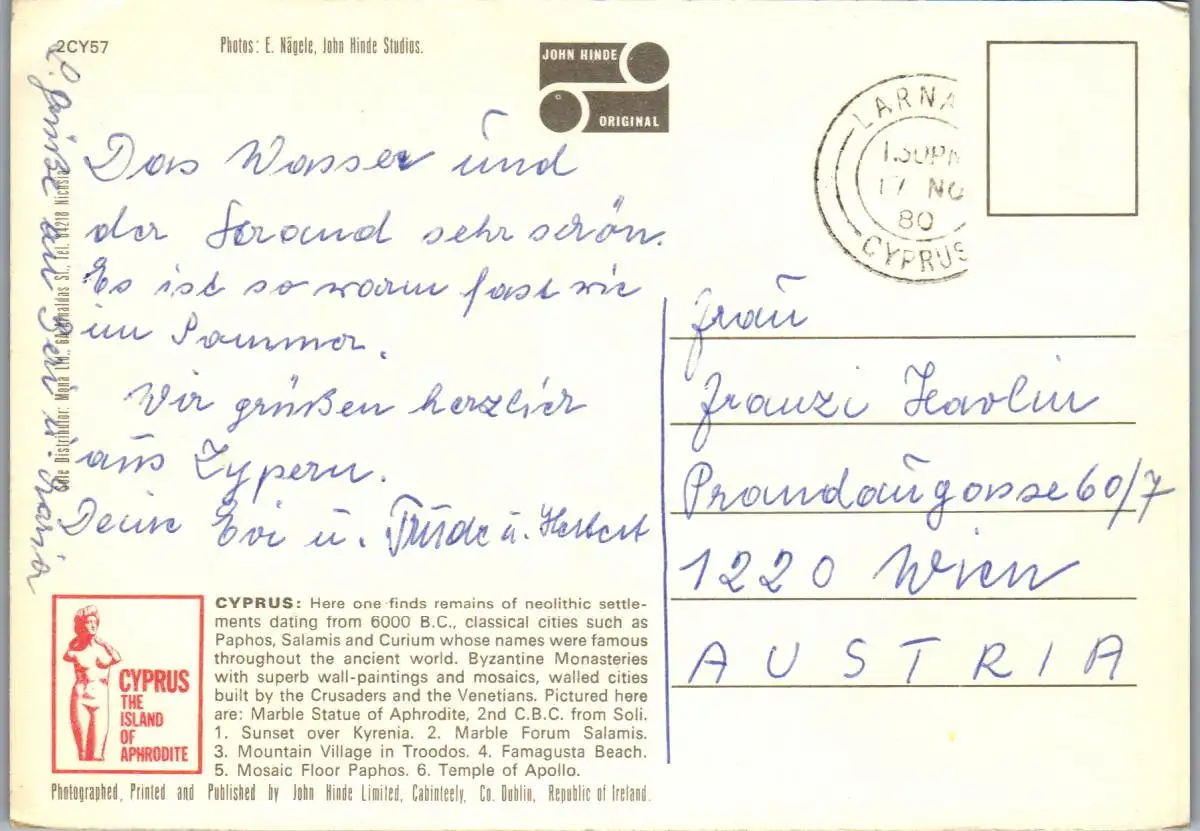 2CY57
Photos: E. Nägele, John Hinde Studios.
JOHN HINDE
ORIGINAL
LARNA
1.30PM
17 NO
80
CYPRUS
Das Wasser und
der Strand sehr schön.
Es ist so warm fast wie
im Sommer.
Wir grüßen herzlich
aus Zypern.
Deine Evi u. Trude u. Herbert
L. Grüße an u. Maria
Sole Distributor: Mona Ltd., St., Tel. 64218 Nicosia
Frau
Franzi Havlin
Prandaugasse 60/7
1220 Wien
AUSTRIA
CYPRUS
THE
ISLAND
OF
APHRODITE
CYPRUS: Here one finds remains of neolithic settle-
ments dating from 6000 B.C., classical cities such as
Paphos, Salamis and Curium whose names were famous
throughout the ancient world. Byzantine Monasteries
with superb wall-paintings and mosaics, walled cities
built by the Crusaders and the Venetians. Pictured here
are: Marble Statue of Aphrodite, 2nd C.B.C. from Soli.
1. Sunset over Kyrenia. 2. Marble Forum Salamis.
3. Mountain Village in Troodos. 4. Famagusta Beach.
5. Mosaic Floor Paphos. 6. Temple of Apollo.
Photographed, Printed and Published by John Hinde Limited, Cabinteely, Co. Dublin, Republic of Ireland.